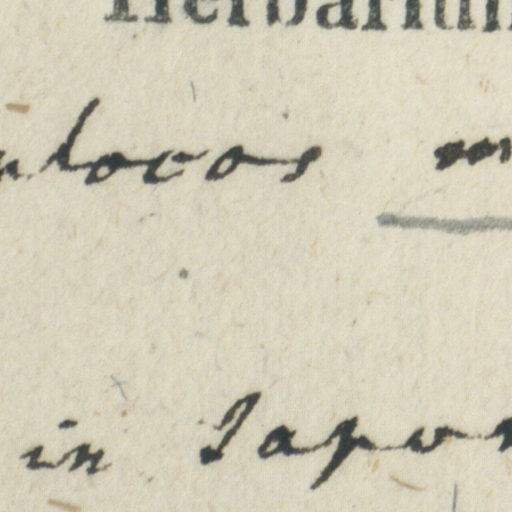 Herbarium
plocos m
in Japon